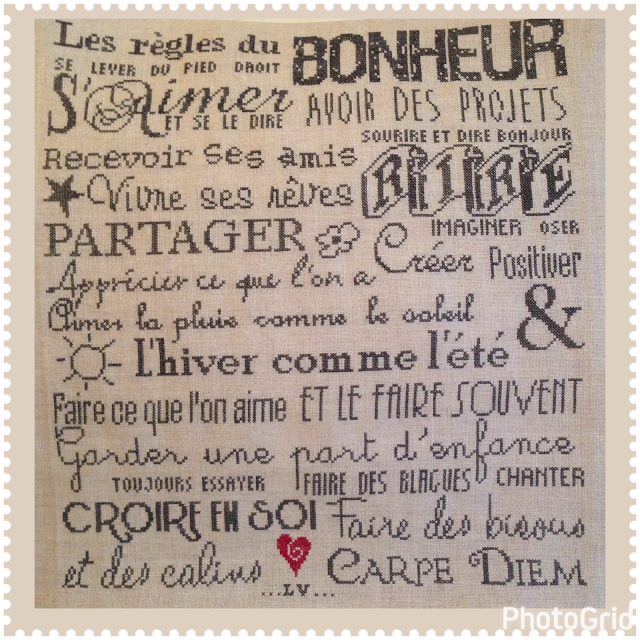 Les règles du BONHEUR
SE LEVER DU PIED DROIT
S'Aimer
ET SE LE DIRE
AVOIR DES PROJETS
SOURIRE ET DIRE BONJOUR
Recevoir ses amis
RIRE
Vivre ses rêves
IMAGINER OSER
PARTAGER
Créer Positiver
Apprécier ce que l'on a
Aimer la pluie comme le soleil
&
l'hiver comme l'été
Faire ce que l'on aime ET LE FAIRE SOUVENT
Garder une part d'enfance
TOUJOURS ESSAYER FAIRE DES BLAGUES CHANTER
CROIRE EN SOI Faire des bisous
et des calins CARPE DIEM
...LV...
PhotoGrid